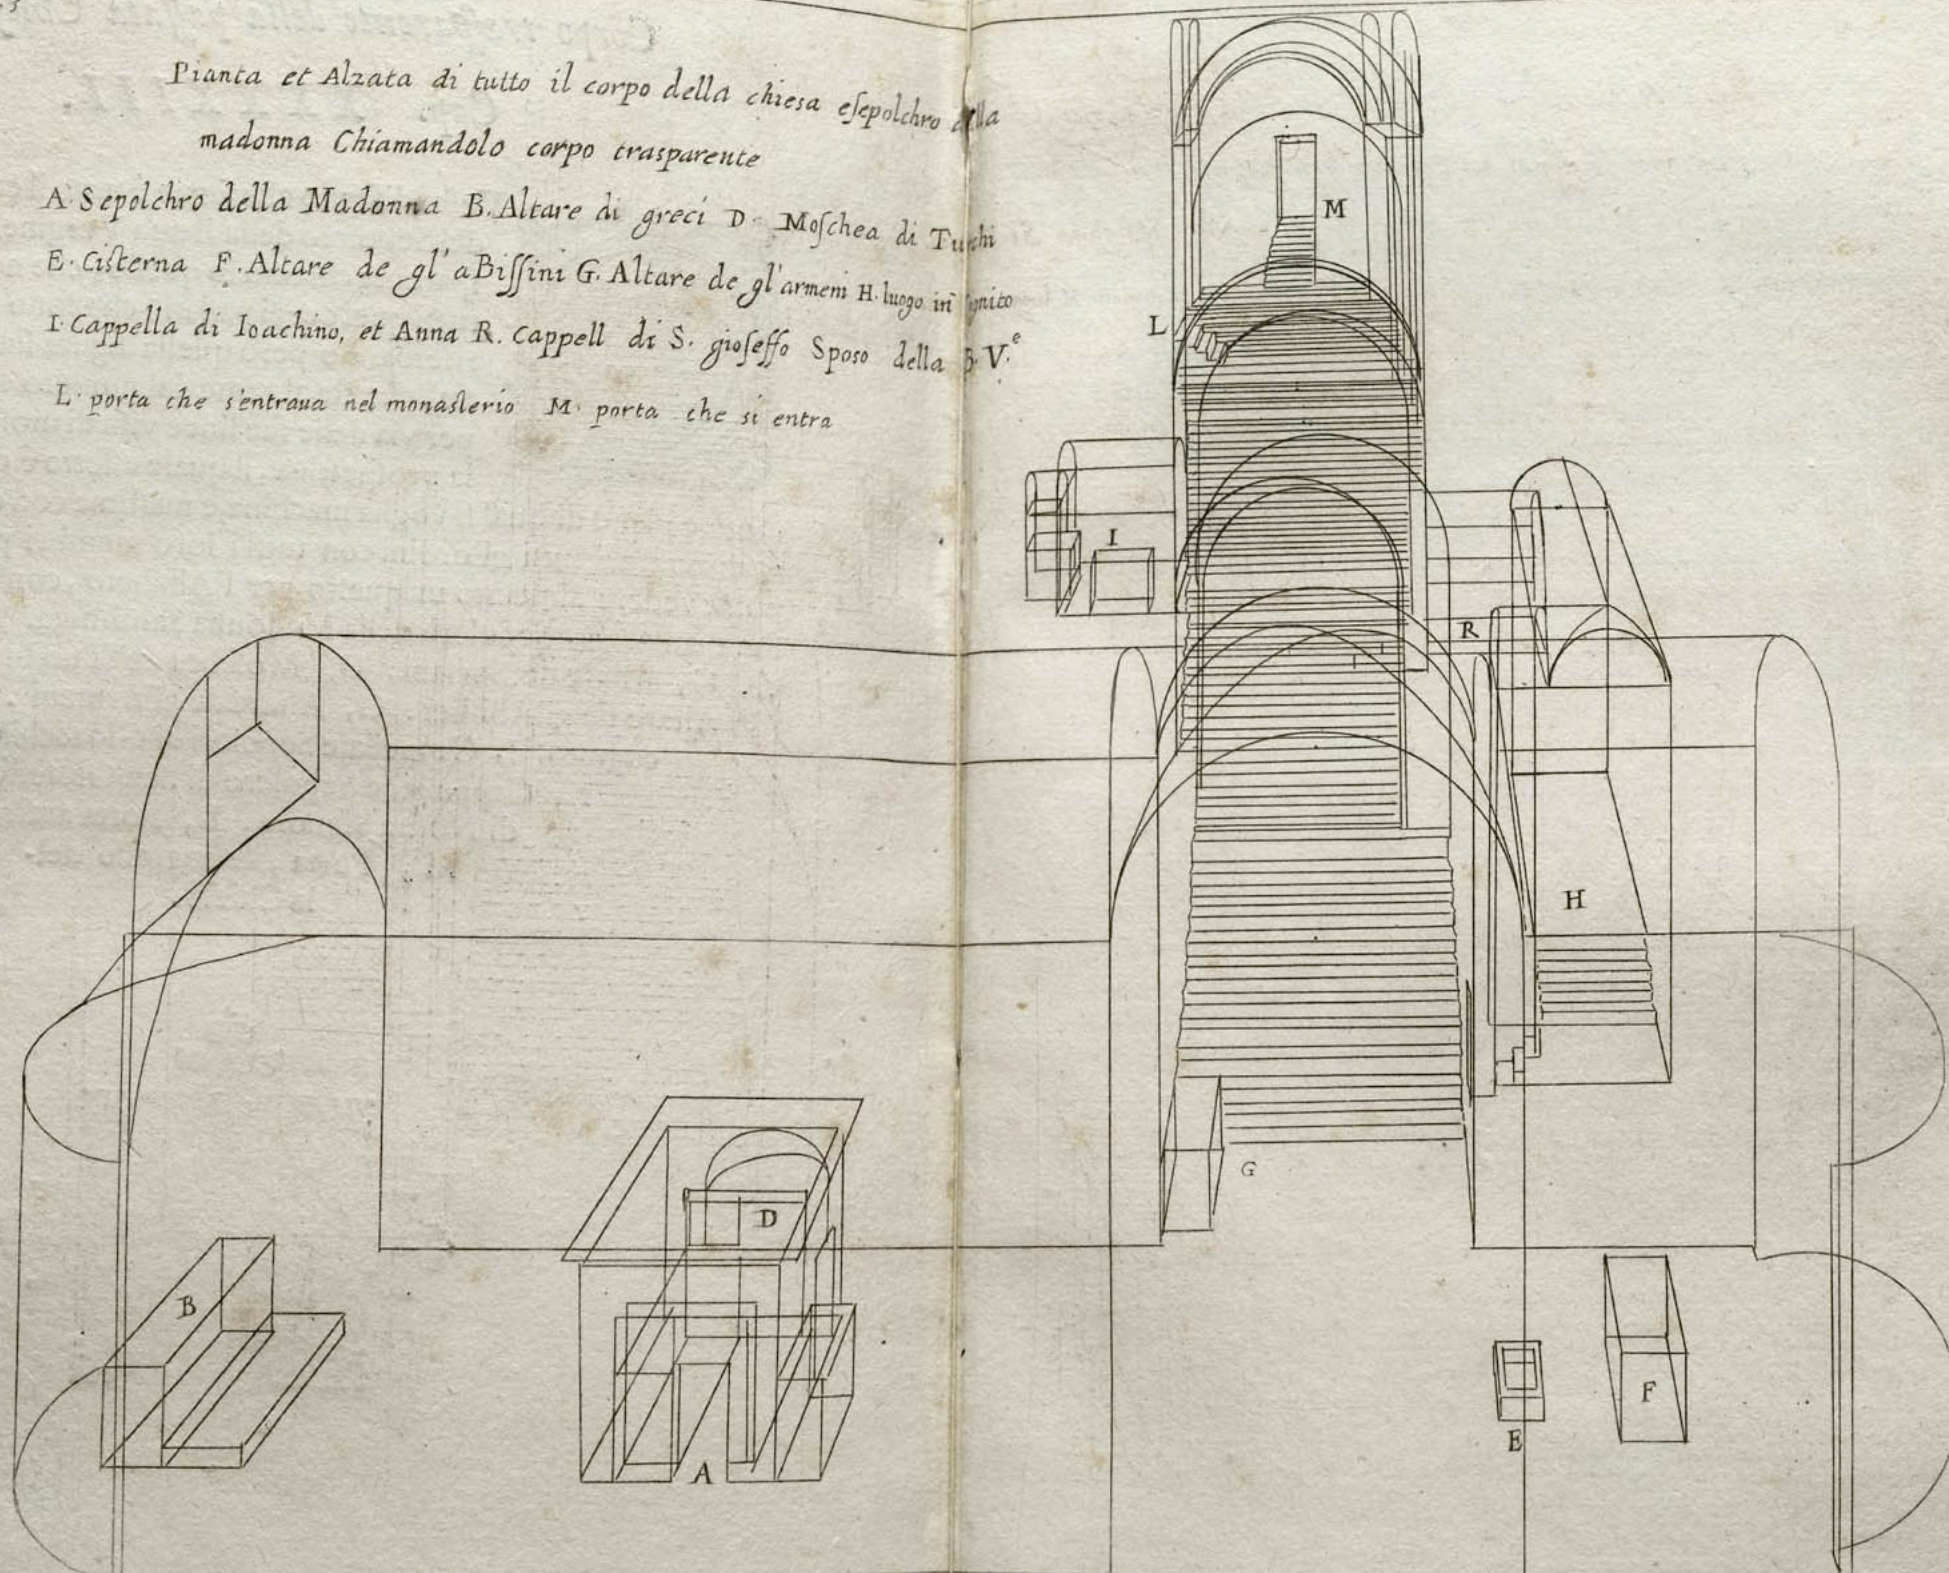 Pianta et Alzata di tutto il corpo della chiesa eſepolchro della
madonna Chiamandolo corpo trasparente
A. Sepolchro della Madonna B. Altare di greci D. Moſchea di Turchi
E. Ciſterna F. Altare de gl' aBiſſini G. Altare de gl' armeni H. luogo in cognito
I. Cappella di Ioachino, et Anna R. Cappell di S. gioſeffo Sposo della B. V.e
L. porta che s'entraua nel monasterio M. porta che si entra
M
L
I
R
H
G
D
B
F
E
A